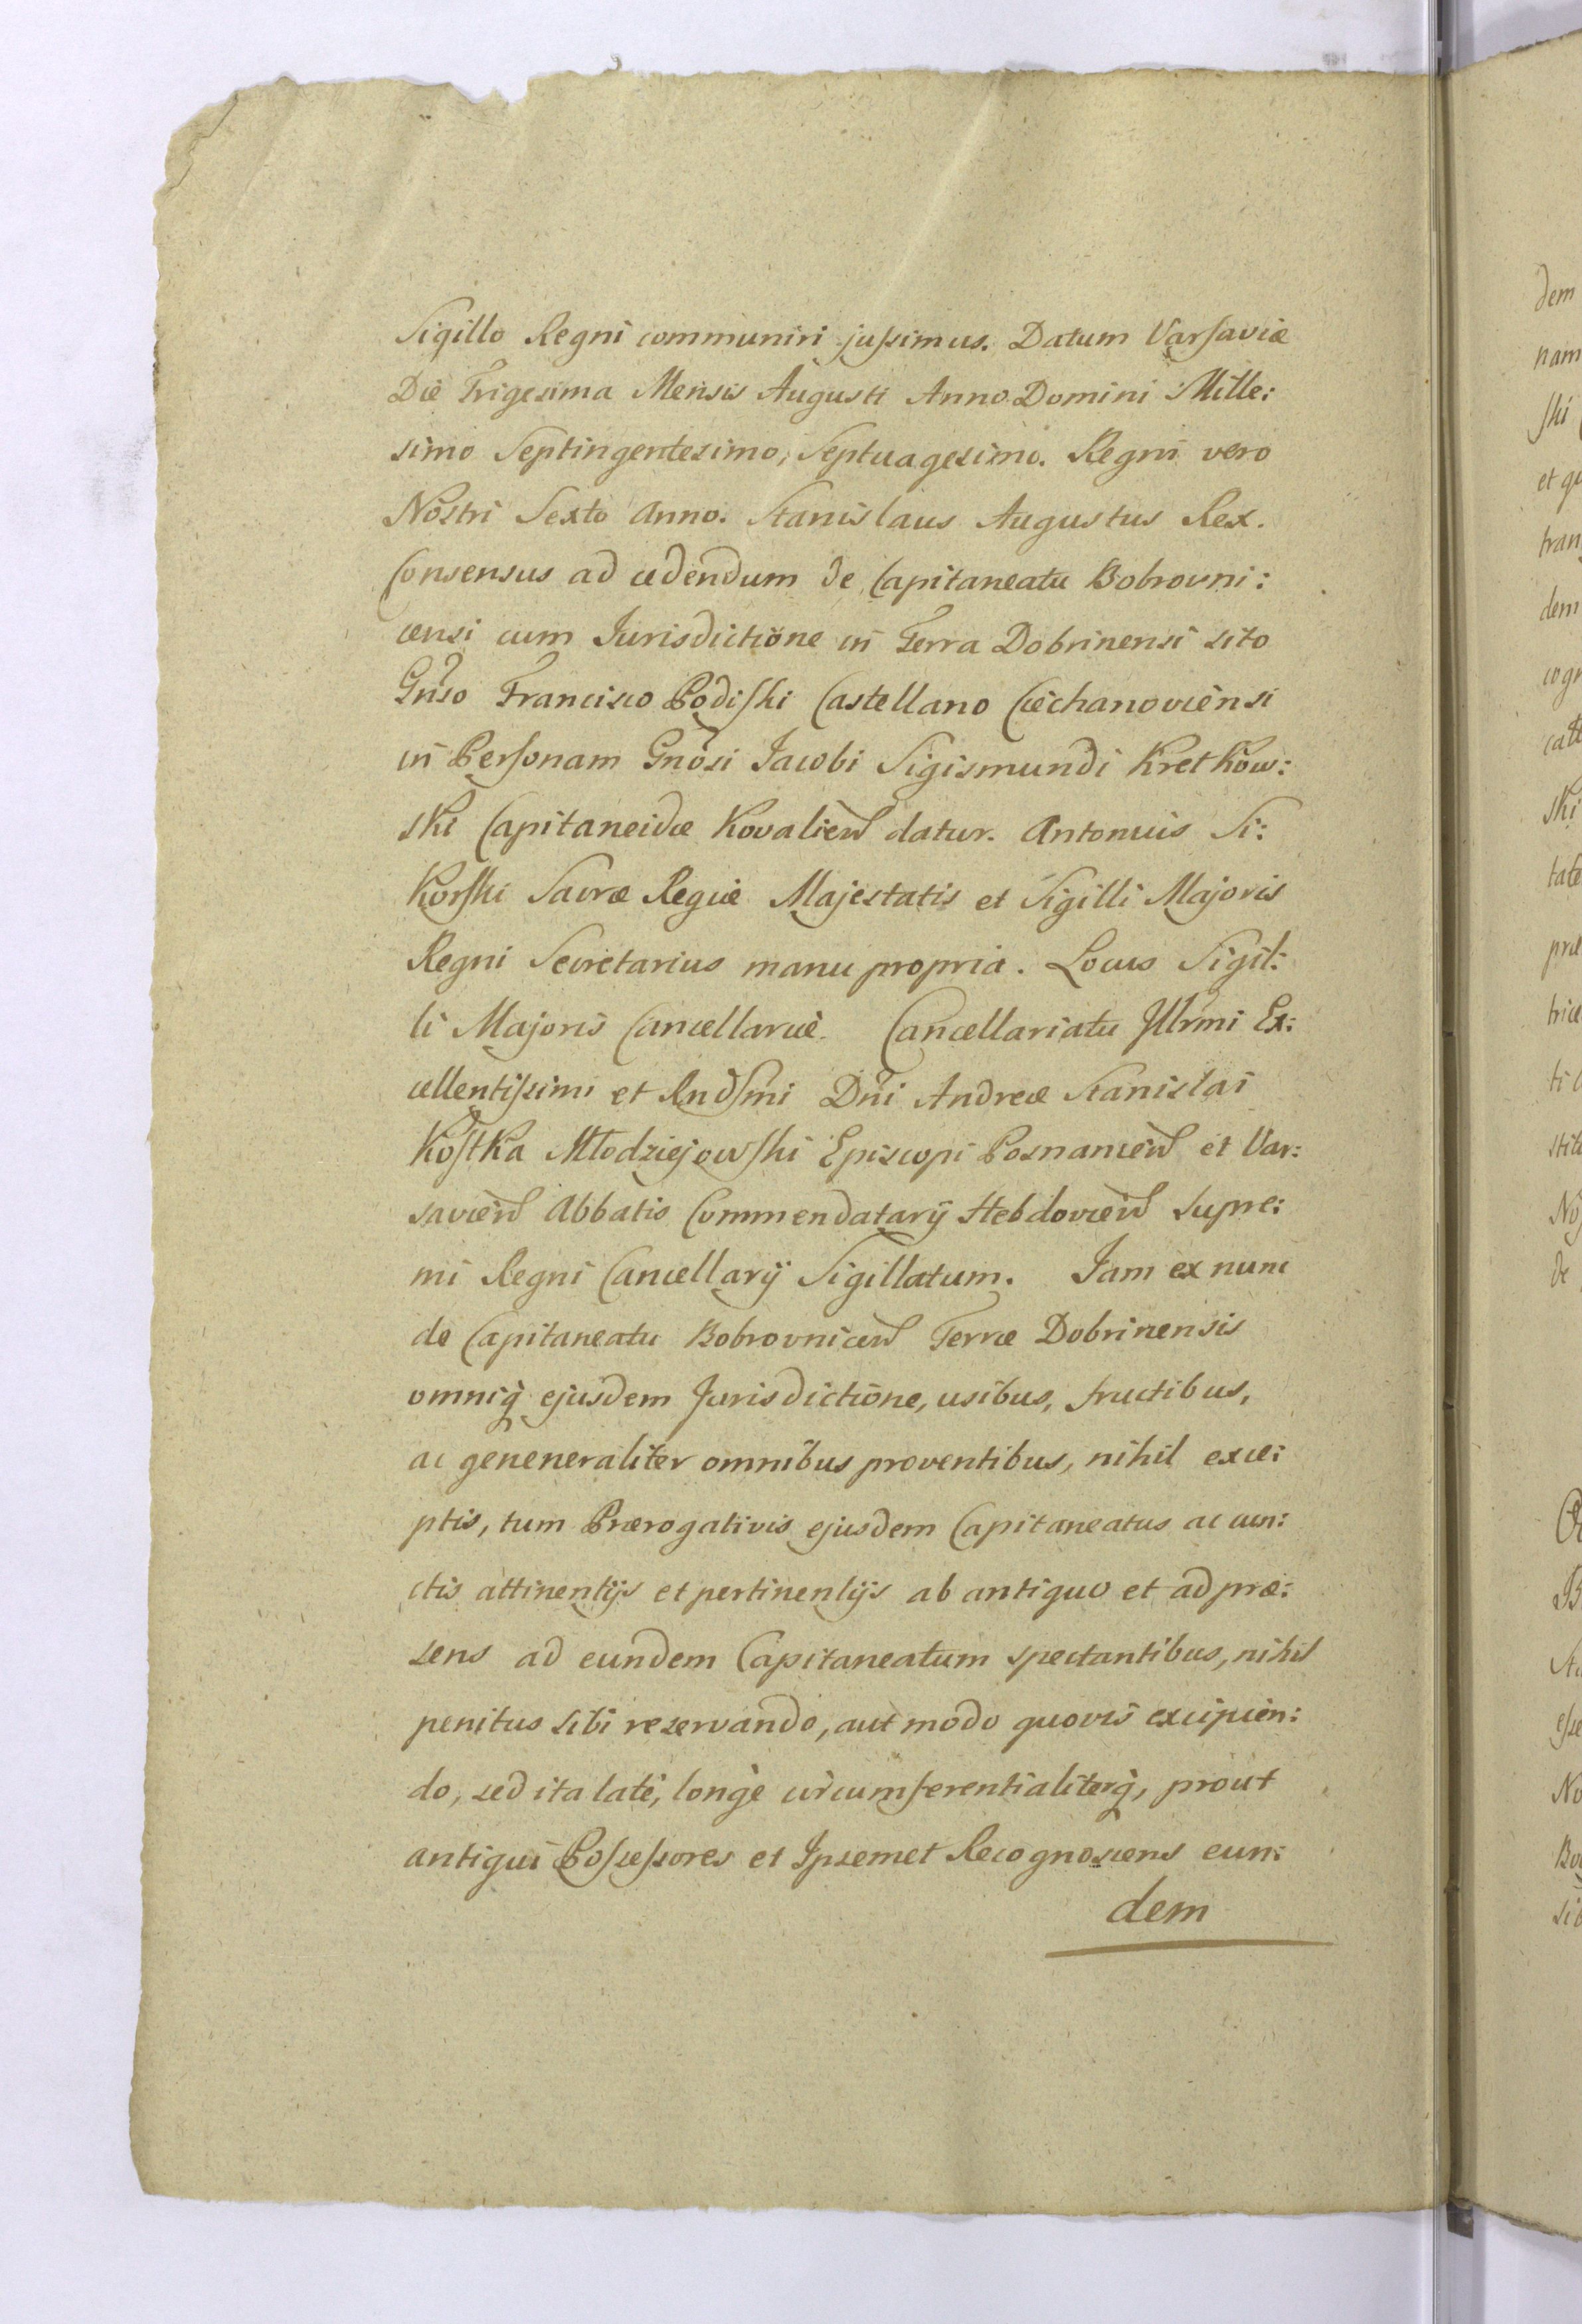 Sigillo Regni communiri jussimus. Datum Varsaviæ
Die Trigesima Mensis Augusti Anno Domini Mille:
simo Septingentesimo, Septuagesimo. Regni vero
Nostri Sexto Anno. Stanislaus Augustus Rex.
Consensus ad cedendum de Capitaneatu Bobrovni:
censi cum Jurisdictione in Terra Dobrinensi sito
Gnso Francisco Podiski Castellano Ciechanoviensi
in Personam Gnosi Jacobi Sigismundi Kretkow:
ski Capitaneidæ Kovalien datur. Antonius Si:
korski Sacræ Regiæ Majestatis et Sigilli Majoris
Regni Secretarius manu propria. Locus Sigil:
li Majoris Cancellariæ. Cancellariatu Illrmi Ex:
cellentissimi et Rndsmi Dni Andreæ Stanislai
Kostka Młodziejowski Episcopi Posnanien et Var:
savien Abbatis Commendatarij Hebdovien Supre:
mi Regni Cancellarij Sigillatum. Jam ex nunc
de Capitaneatu Bobrovnicen Terræ Dobrinensis
omniq ejusdem Jurisdictione, usibus, fructibus,
ac geneneraliter omnibus proventibus, nihil exce:
ptis, tum Prærogativis ejusdem Capitaneatus ac cun:
ctis attinentijs et pertinentijs ab antiquo et ad præ:
sens ad eundem Capitaneatum spectantibus, nihil
penitus sibi reservando, aut modo quovis excipien:
do, sed ita latè, longè circumferentialiterq, prout
antiqui Possessores et Ipsemet Recognoscens eun:
dem